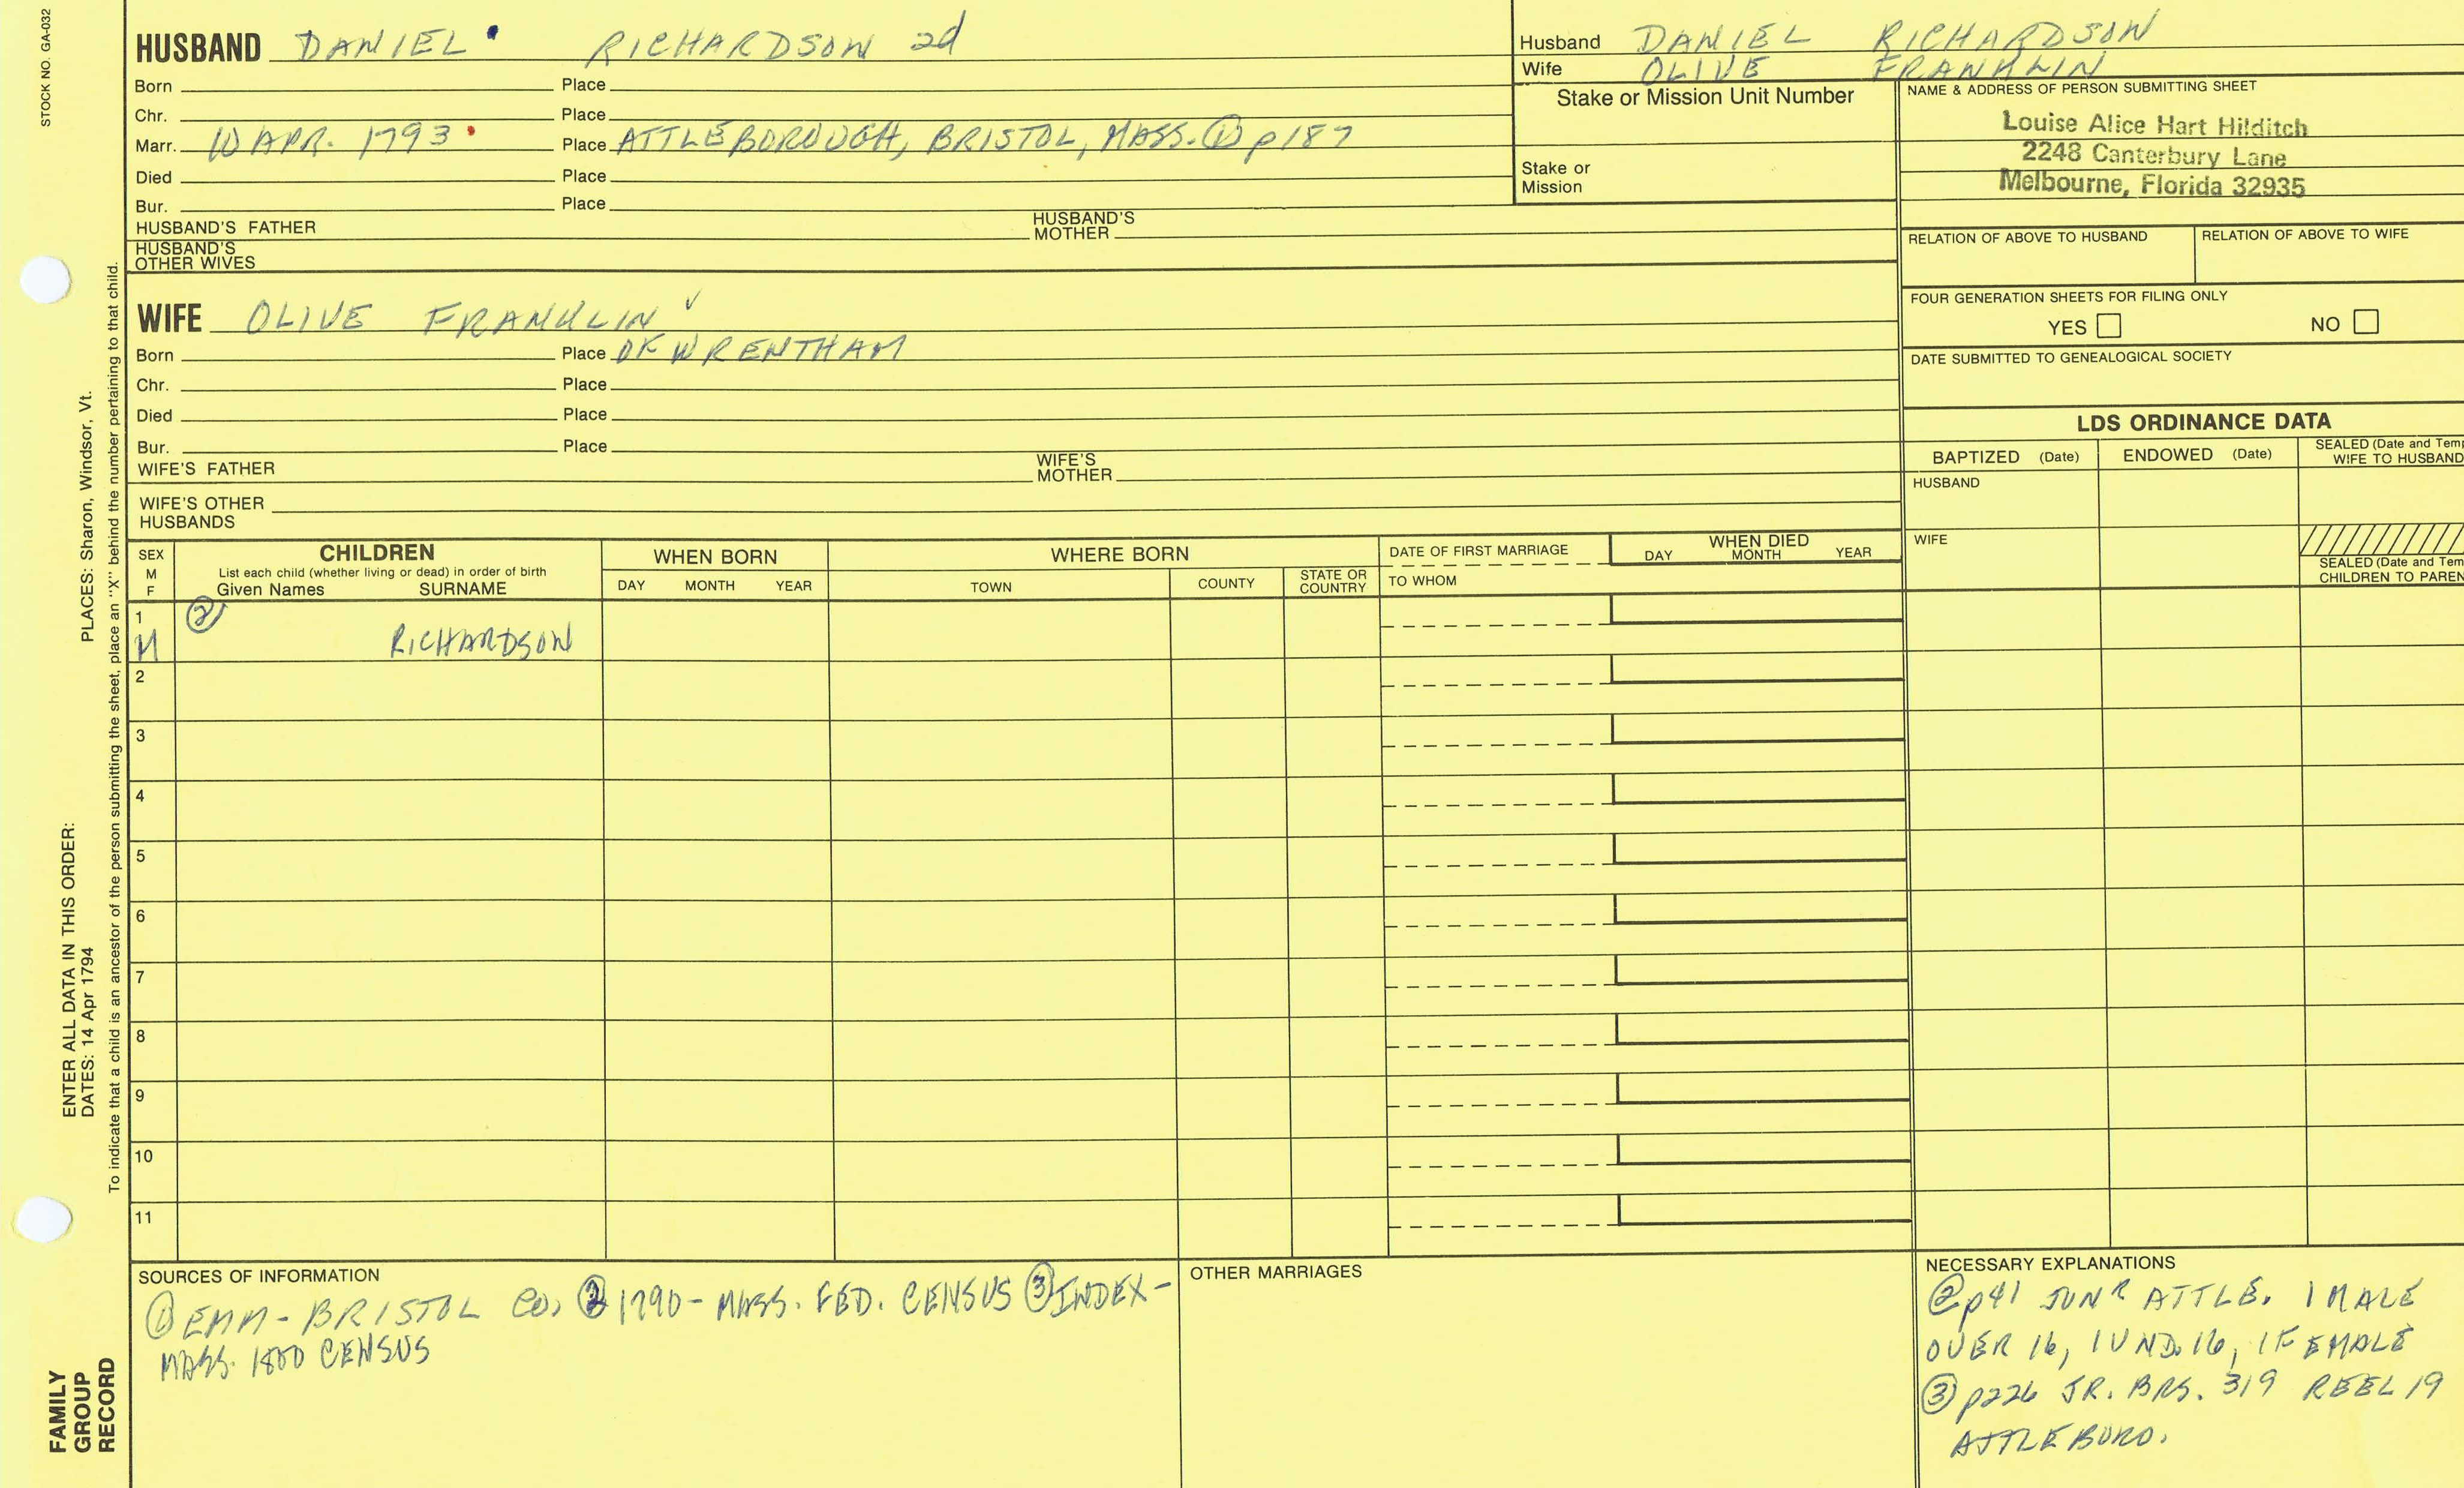 STOCK NO. GA-032
HUSBAND DANIEL RICHARDSON 2d
Born Place
Chr. Place
Marr. 10 APR. 1793 Place ATTLEBOROUGH, BRISTOL, MASS. ① p187
Died Place
Bur. Place
HUSBAND'S FATHER HUSBAND'S MOTHER
HUSBAND'S OTHER WIVES
Husband DANIEL RICHARDSON
Wife OLIVE FRANKLIN
Stake or Mission Unit Number
Stake or
Mission
NAME & ADDRESS OF PERSON SUBMITTING SHEET
Louise Alice Hart Hilditch
2248 Canterbury Lane
Melbourne, Florida 32935
RELATION OF ABOVE TO HUSBAND RELATION OF ABOVE TO WIFE
FOUR GENERATION SHEETS FOR FILING ONLY
YES NO
DATE SUBMITTED TO GENEALOGICAL SOCIETY
WIFE OLIVE FRANKLIN ✓
Born Place OF WRENTHAM
Chr. Place
Died Place
Bur. Place
WIFE'S FATHER WIFE'S MOTHER
WIFE'S OTHER
HUSBANDS
LDS ORDINANCE DATA
BAPTIZED (Date) ENDOWED (Date) SEALED (Date and Temp
WIFE TO HUSBAND
HUSBAND
WIFE
SEALED (Date and Tem
CHILDREN TO PAREN
SEX
M
F
CHILDREN
List each child (whether living or dead) in order of birth
Given Names SURNAME
WHEN BORN
DAY MONTH YEAR
WHERE BORN
TOWN COUNTY STATE OR COUNTRY
DATE OF FIRST MARRIAGE
TO WHOM
WHEN DIED
DAY MONTH YEAR
1 ②
M RICHARDSON
2
3
4
5
6
7
8
9
10
11
SOURCES OF INFORMATION
① EMM - BRISTOL CO, ② 1790 - MASS. FED. CENSUS ③ INDEX -
MASS. 1800 CENSUS
OTHER MARRIAGES
NECESSARY EXPLANATIONS
② p41 JUNR ATTLE. 1 MALE
OVER 16, 1 UND. 16, 1 FEMALE
③ p226 JR. BRS. 319 REEL 19
ATTLEBORO.
ENTER ALL DATA IN THIS ORDER:
DATES: 14 Apr 1794 PLACES: Sharon, Windsor, Vt.
To indicate that a child is an ancestor of the person submitting the sheet, place an "X" behind the number pertaining to that child.
FAMILY
GROUP
RECORD